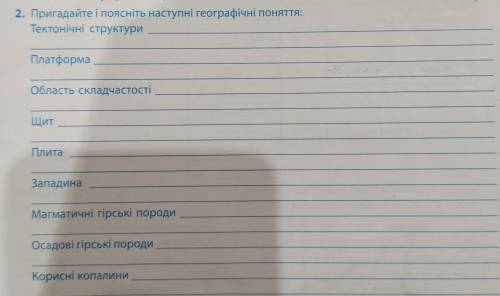 2. Пригадайте і поясніть наступні географічні поняття:
Тектонічні структури
Платформа
Область складчастості
Щит
Плита
Западина
Магматичні гірські породи
Осадові гірські породи
Корисні копалини